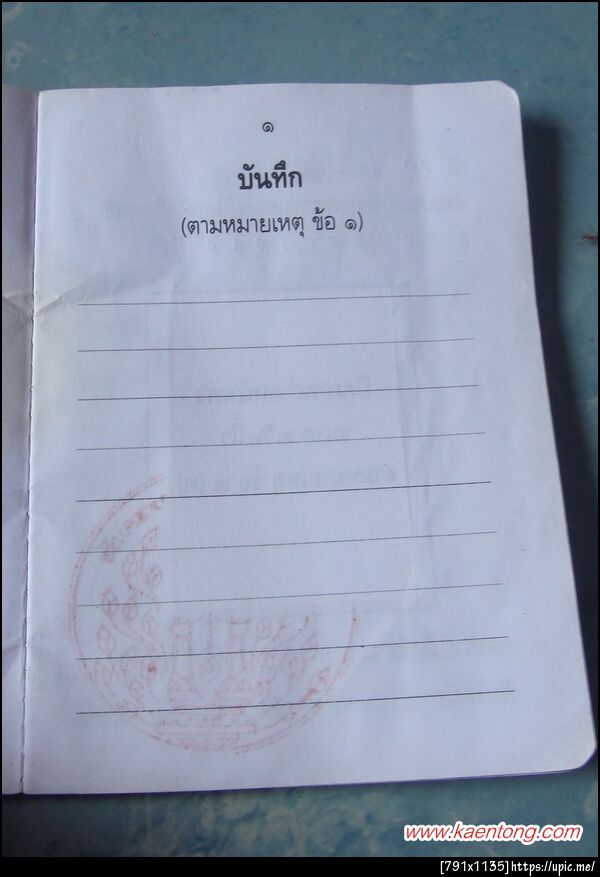 ๑
บันทึก
(ตามหมายเหตุ ข้อ ๑)
www.kaentong.com
[791x1135]https://upic.me/